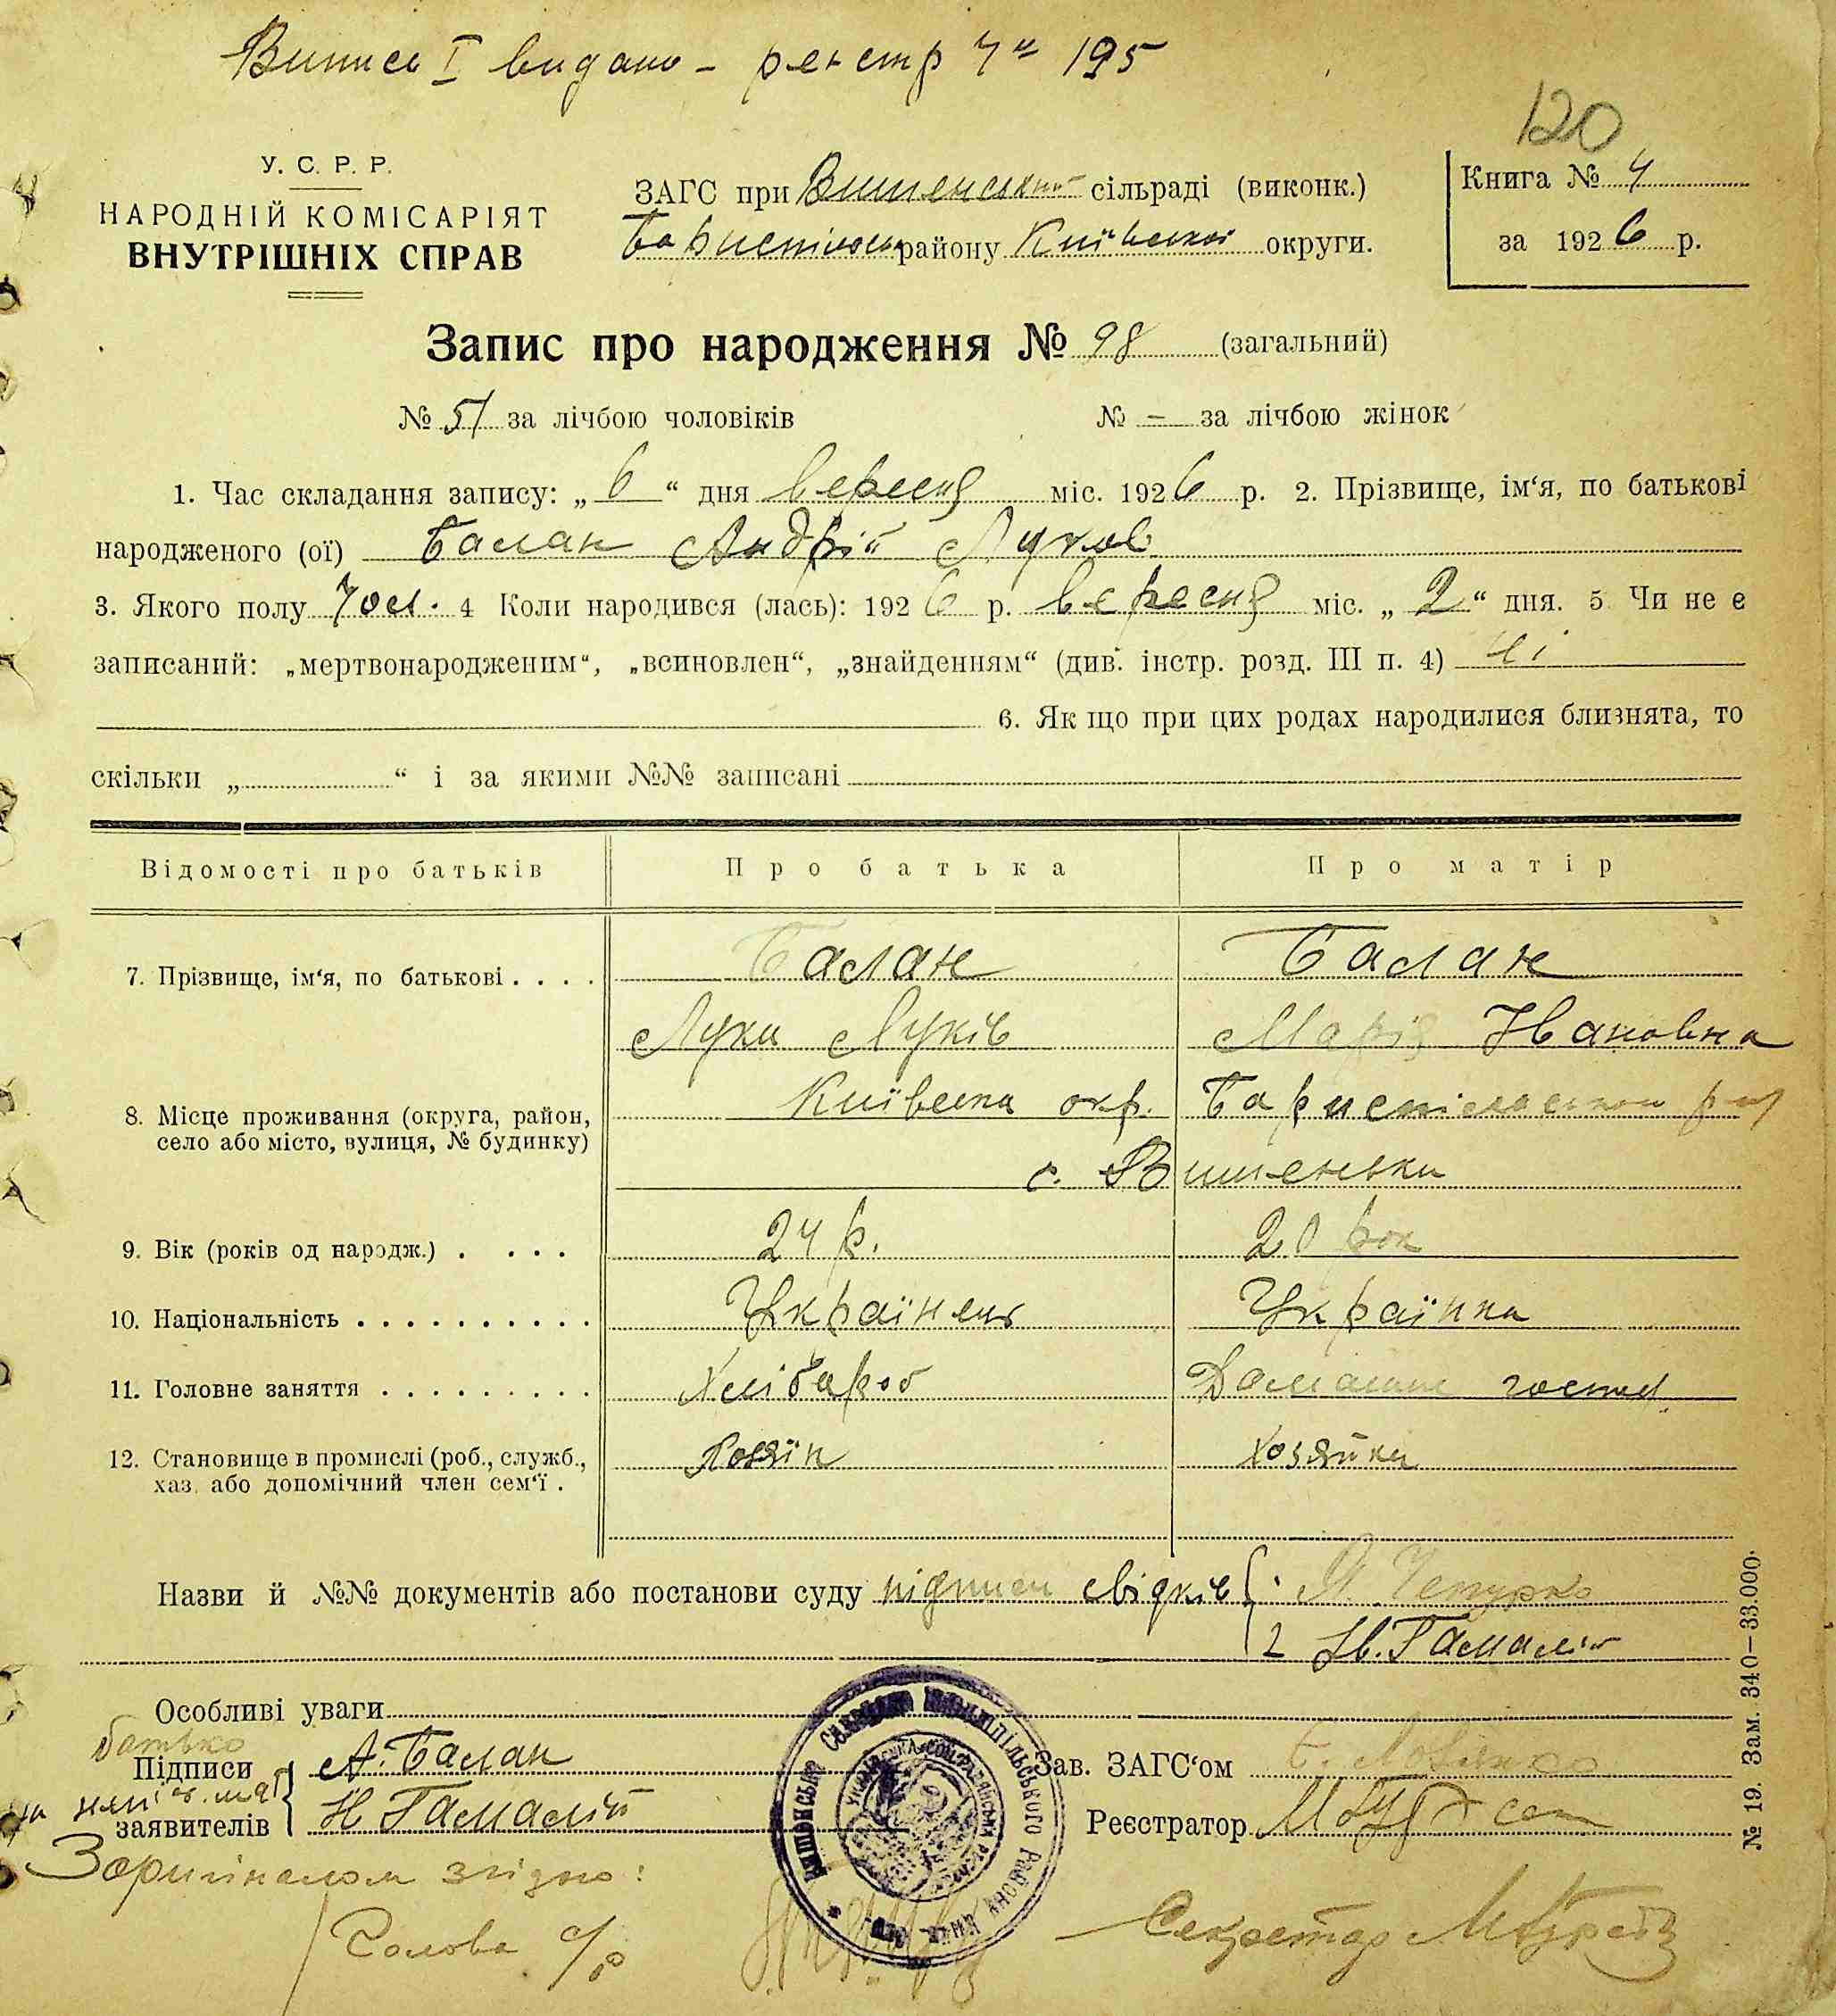 Випись I видано - реєстр Ч 195
120
У. С. Р. Р.
НАРОДНІЙ КОМІСАРІЯТ
ВНУТРІШНІХ СПРАВ
ЗАГС при Вишенській сільраді (виконк.)
Бориспільськ району Київської округи.
Книга № 4
за 1926 р.
Запис про народження № 98 (загальний)
№ 51 за лічбою чоловіків № – за лічбою жінок
1. Час складання запису: „ 6 “ дня вересня міс. 1926 р. 2. Прізвище, ім‘я, по батькові
народженого (ої) Балан Андрій Луков
3. Якого полу Чол. 4 Коли народився (лась): 1926 р. вересня міс. „ 2 “ дня. 5 Чи не є
записаний: „мертвонародженим“, „всиновлен“, „знайденням“ (див. інстр. розд. III п. 4) ні
6. Як що при цих родах народилися близнята, то
скільки „ “ і за якими №№ записані
Відомості про батьків Про батька Про матір
7. Прізвище, ім‘я, по батькові . . . . Балан Балан
Лука Луків Марія Івановна
8. Місце проживання (округа, район, Київська окр. Бариспільського рай
село або місто, вулиця, № будинку)
с. Вишеньки
9. Вік (років од народж.) . . . . 24 р. 20 рок
10. Національність . . . . . . . . . . Українець Українка
11. Головне заняття . . . . . . . . . Хлібороб Домашнє господ.
12. Становище в промислі (роб., служб., Хозяїн хозяйка
хаз. або допомічний член сем‘ї .
Назви й №№ документів або постанови суду підписи свідків { 1 Чепурко
2 Ів. Гамалій
Особливі уваги
батько
Підписи А. Балан Зав. ЗАГС‘ом
заявителів Н Гамалій Реєстратор
З оригіналом згідно:
Голова с/р Секретар
№ 19. Зам. 340—33.000.